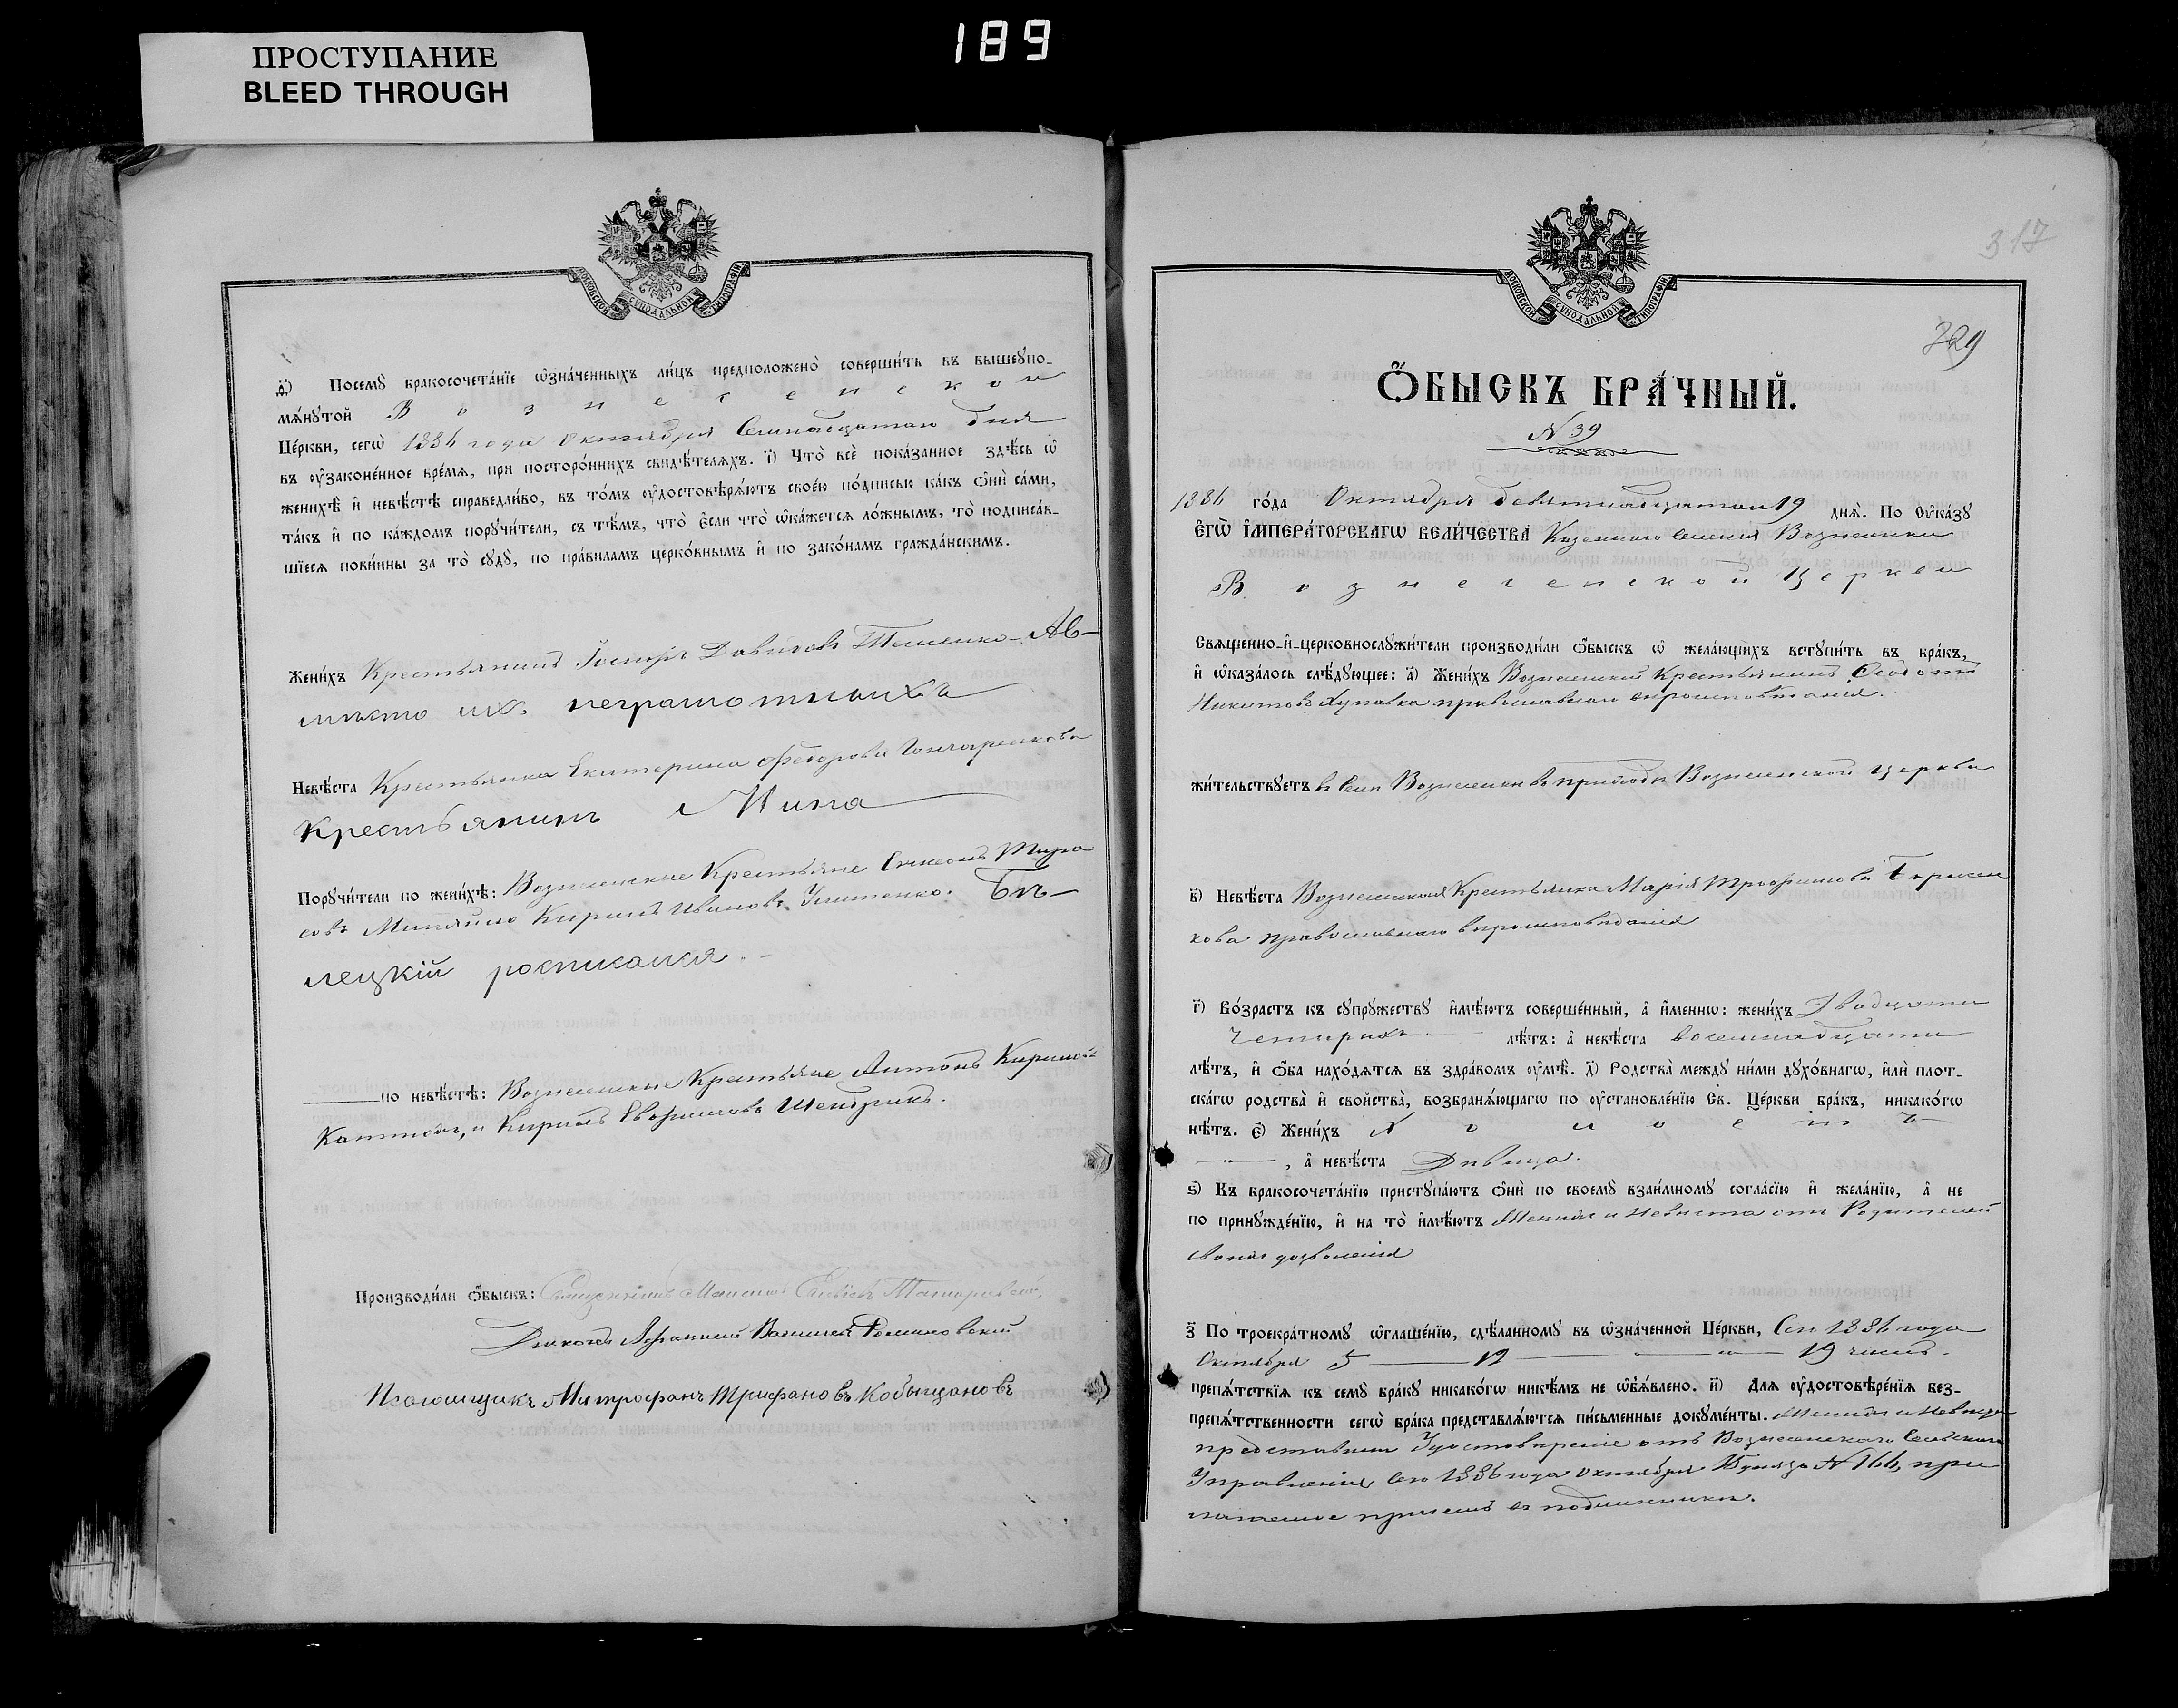 189
ПРОСТУПАНИЕ
BLEED THROUGH
МОСКОВСКОЙ СѴНОДАЛЬНОЙ ТИПОГРАФІИ
Посемꙋ бракосочета́нїе ѡ҆зна́ченныхъ ли́цъ предположено̀ соверши́ть въ вышеꙋпо-
мѧ́нꙋтой Вознесенской
Це́ркви, сегѡ̀ 1886 года Октября Семнадцатаго дня
въ ᲂу҆законе́нное вре́мѧ, при посторо́ннихъ свидѣ́телѧхъ. і҃) Что̀ всѐ пока́занное здѣ́сь ѡ҆
женихѣ̀ и҆ невѣ́стѣ справедли́во, въ то́мъ ᲂу҆достовѣрѧ́ютъ свое́ю по́дписью ка́къ ѻ҆нѝ са́ми,
та́къ и҆ по ка́ждомъ порꙋчи́тели, съ тѣ́мъ, что̀ є҆́сли что̀ ѡ҆ка́жетсѧ ло́жнымъ, то̀ подписа́в-
шїесѧ пови́нны за то̀ сꙋдꙋ̀, по пра́виламъ церко́внымъ и҆ по зако́намъ гражда́нскимъ.
Жени́хъ Крестьянинъ Іосифъ Давидовъ Тешенко. А в-
мѣсто их неграмотныхъ
Невѣ́ста Крестьянка Екатерина Федорова Гончаренкова
Крестьянинъ Мина
Порꙋчи́тели по женихѣ̀: Вознесенские Крестьяне Симеонъ Тира
совъ Минайло Кирилъ Ивановъ Ушенко. Бѣ-
лецкій росписался.
по невѣ́стѣ: Вознесенские Крестьяне Антонъ Кирилов
и Кирилъ Шендрикъ.
Производи́ли ѻ҆́быскъ: Священникъ
Діаконъ Василий
Псаломщикъ Митрофанъ Трифановъ Кобыщановъ
317
329
МОСКОВСКОЙ СѴНОДАЛЬНОЙ ТИПОГРАФІИ
Ѻ҆БЫСКЪ БРА́ЧНЫЙ.
N 39
1886 го́да Октября девятнадцатаго 19 днѧ̀. По Оу҆ка́зꙋ
Є҆ГѠ̀ И҆МПЕРА́ТОРСКАГѠ ВЕЛИ́ЧЕСТВА Казеннаго Селения Вознесенки
Вознесенской Церкви
Свѧще́нно-и҆-церковнослꙋжи́тели производи́ли ѻ҆́быскъ ѡ҆ жела́ющихъ встꙋпи́ть въ бра́къ,
и҆ ѡ҆каза́лось слѣ́дꙋющее: а҃) Жени́хъ Вознесенский Крестьянинъ Федотъ
Никитовъ православнаго вѣроисповѣданія.
жи́тельствꙋетъ в Селѣ Вознесенкѣ в приходѣ Вознесенской церкви
в҃) Невѣ́ста Вознесенская Крестьянка Марія Трофимова Борисен
кова православнаго вѣроисповѣданія
г҃) Во́зрастъ къ сꙋпрꙋ́жествꙋ и҆мѣ́ютъ соверше́нный, а҆ и҆́меннѡ: жени́хъ Двадцати
четырехъ лѣ́тъ: а҆ невѣ́ста восемнадцати
лѣ́тъ, и҆ ѻ҆́ба нахо́дѧтсѧ въ здра́вомъ ᲂу҆мѣ̀. д҃) Родства̀ междꙋ ни́ми дꙋхо́внагѡ, и҆лѝ плот-
ска́гѡ родства̀ и҆ свойства̀, возбранѧ́ющагѡ по ᲂу҆становле́нїю Св. Це́ркви бра́къ, никако́гѡ
нѣ́тъ. є҃) Жени́хъ Холостъ
, а҆ невѣ́ста Дѣвица.
ѕ҃) Къ бракосочета́нїю пристꙋпа́ютъ ѻ҆нѝ по своемꙋ̀ взаи́мномꙋ согла́сїю и҆ жела́нїю, а҆ не
по принꙋжде́нїю, и҆ на то̀ и҆мѣ́ютъ Женихъ и Невѣста отъ Родителей
своихъ дозволения
з҃) По троекра́тномꙋ ѡ҆глаше́нїю, сдѣ́ланномꙋ въ ѡ҆зна́ченной Це́ркви, Сего 1886 года
Октября 5 — 12 — 19 числ.
препѧ́тствїѧ къ семꙋ̀ бра́кꙋ никако́гѡ никѣ́мъ не ѡ҆б̾ѧ́влено. и҃) Длѧ ᲂу҆достовѣре́нїѧ без-
препѧ́тственности сегѡ̀ бра́ка представлѧ́ютсѧ пи́сьменные докꙋме́нты. Женихъ и Невѣста
представили Удостоверение отъ Вознесенского Сельскаго
Управления Сего 1886 года Октября 15 дня за N 166, при
лагаемое при семъ в подлиннике.